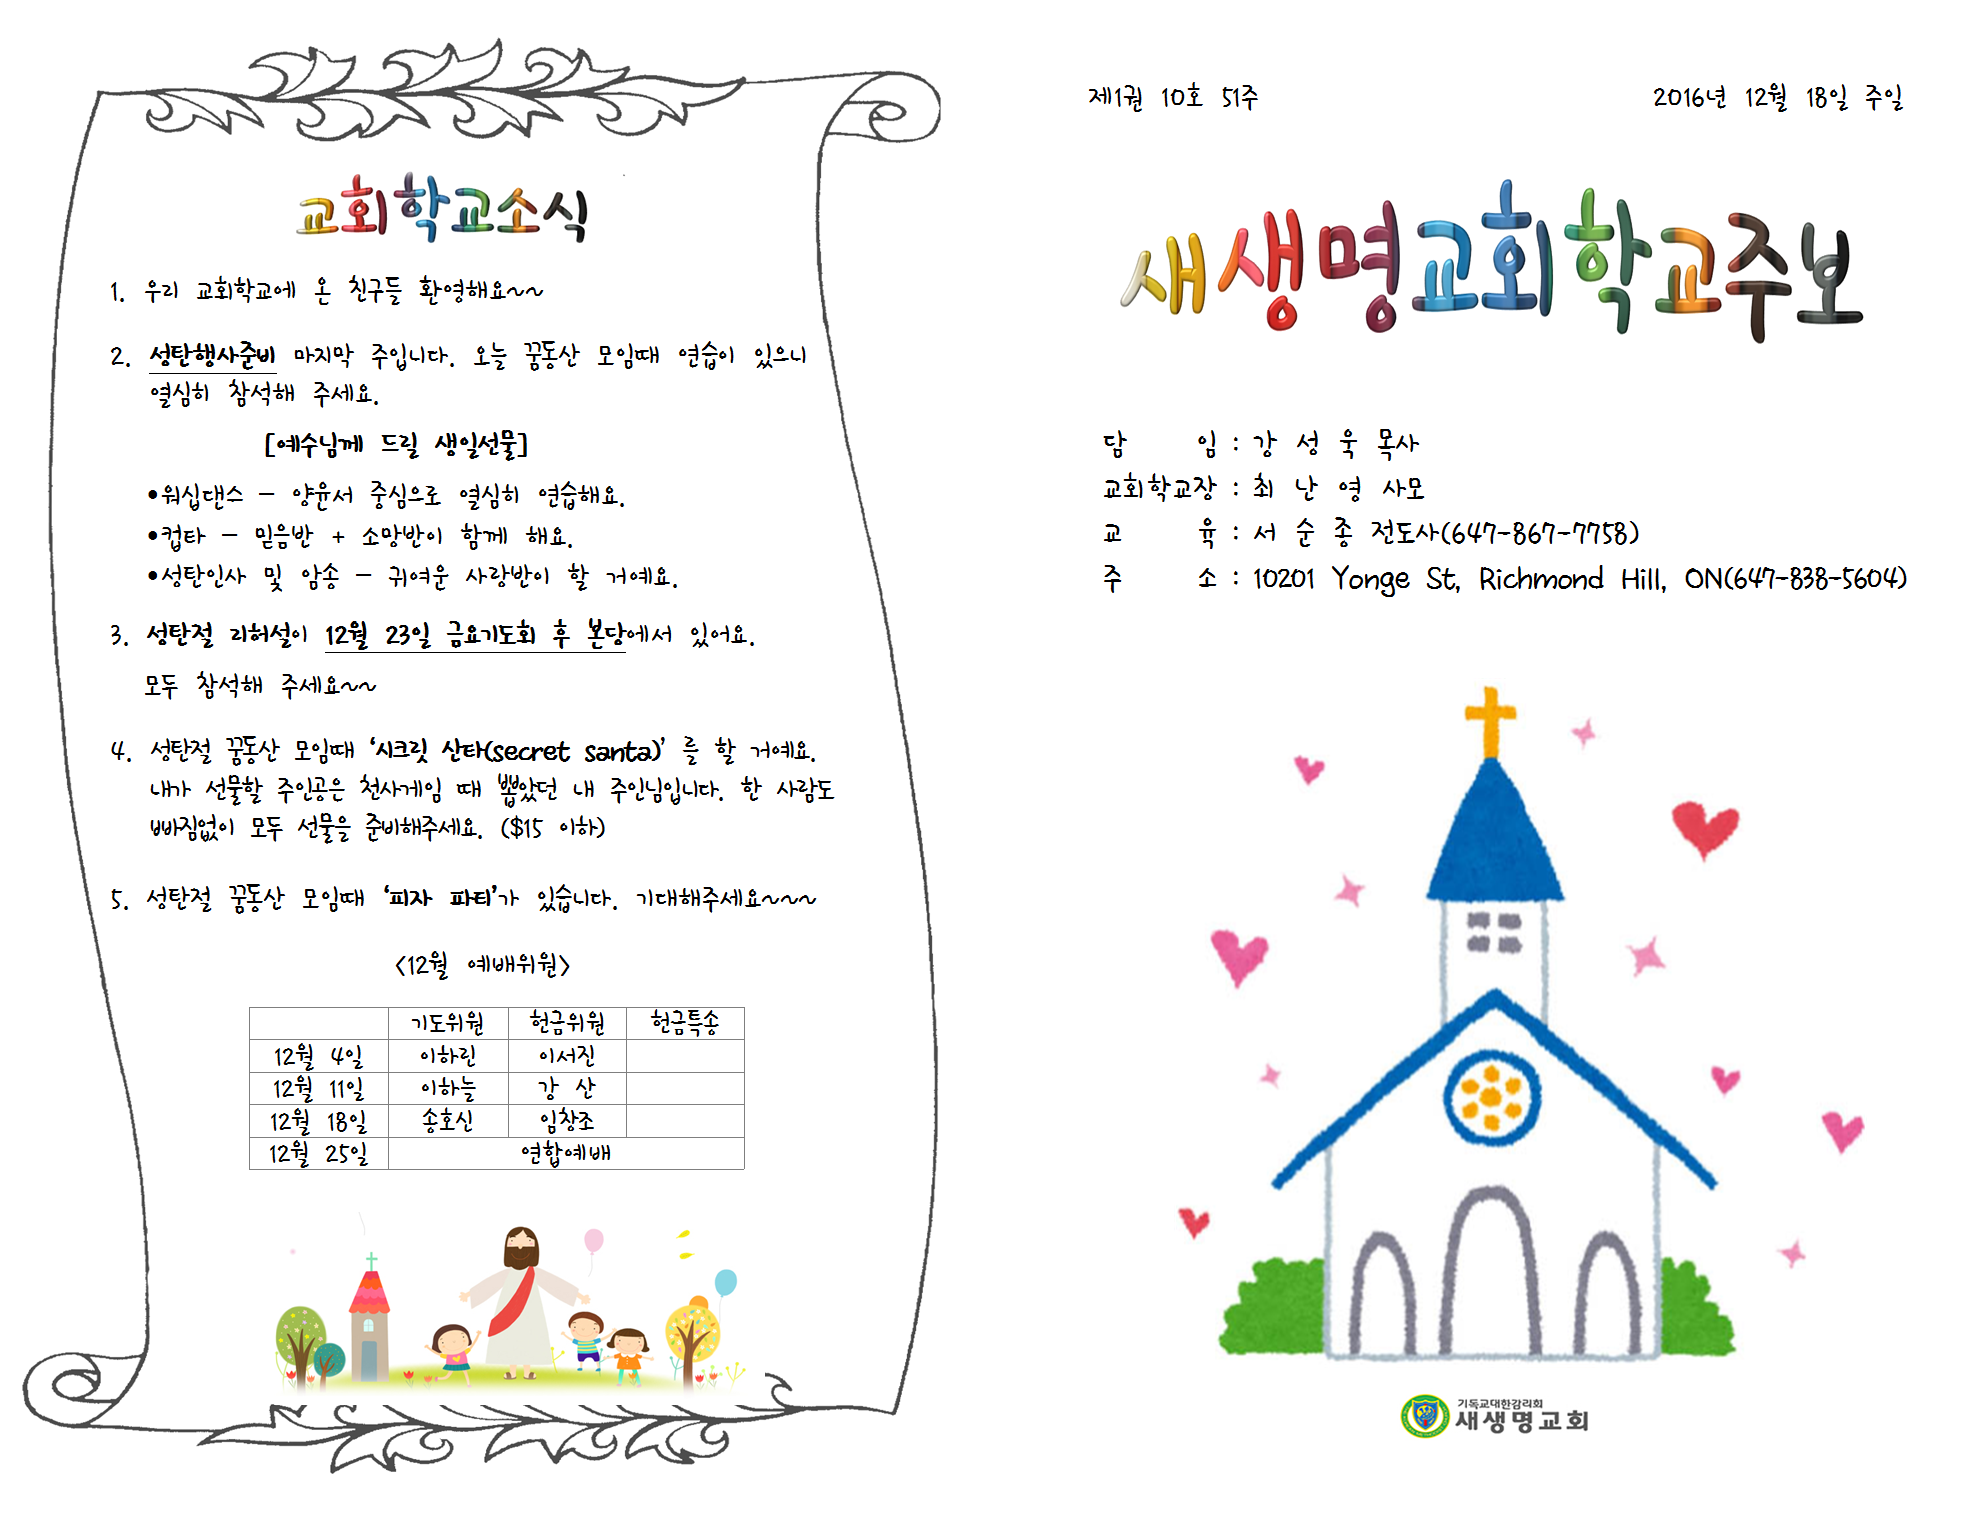 교회학교소식
1. 우리 교회학교에 온 친구들 환영해요~~
2. 성탄행사준비 마지막 주입니다. 오늘 꿈동산 모임때 연습이 있으니
열심히 참석해 주세요.
[예수님께 드릴 생일선물]
•워십댄스 - 양윤서 중심으로 열심히 연습해요.
•컵타 - 믿음반 + 소망반이 함께 해요.
•성탄인사 및 암송 - 귀여운 사랑반이 할 거예요.
3. 성탄절 리허설이 12월 23일 금요기도회 후 본당에서 있어요.
모두 참석해 주세요~~
4. 성탄절 꿈동산 모임때 ‘시크릿 산타(secret santa)’ 를 할 거예요.
내가 선물할 주인공은 천사게임 때 뽑았던 내 주인님입니다. 한 사람도
빠짐없이 모두 선물을 준비해주세요. ($15 이하)
5. 성탄절 꿈동산 모임때 ‘피자 파티’가 있습니다. 기대해주세요~~~
<12월 예배위원>
기도위원 헌금위원 헌금특송
12월 4일 이하린 이서진
12월 11일 이하늘 강 산
12월 18일 송호신 임창조
12월 25일 연합예배
제1권 10호 51주
2016년 12월 18일 주일
새생명교회학교주보
담 임 : 강 성 욱 목사
교회학교장 : 최 난 영 사모
교 육 : 서 순 종 전도사(647-867-7758)
주 소 : 10201 Yonge St, Richmond Hill, ON(647-838-5604)
기독교대한감리회
새생명교회